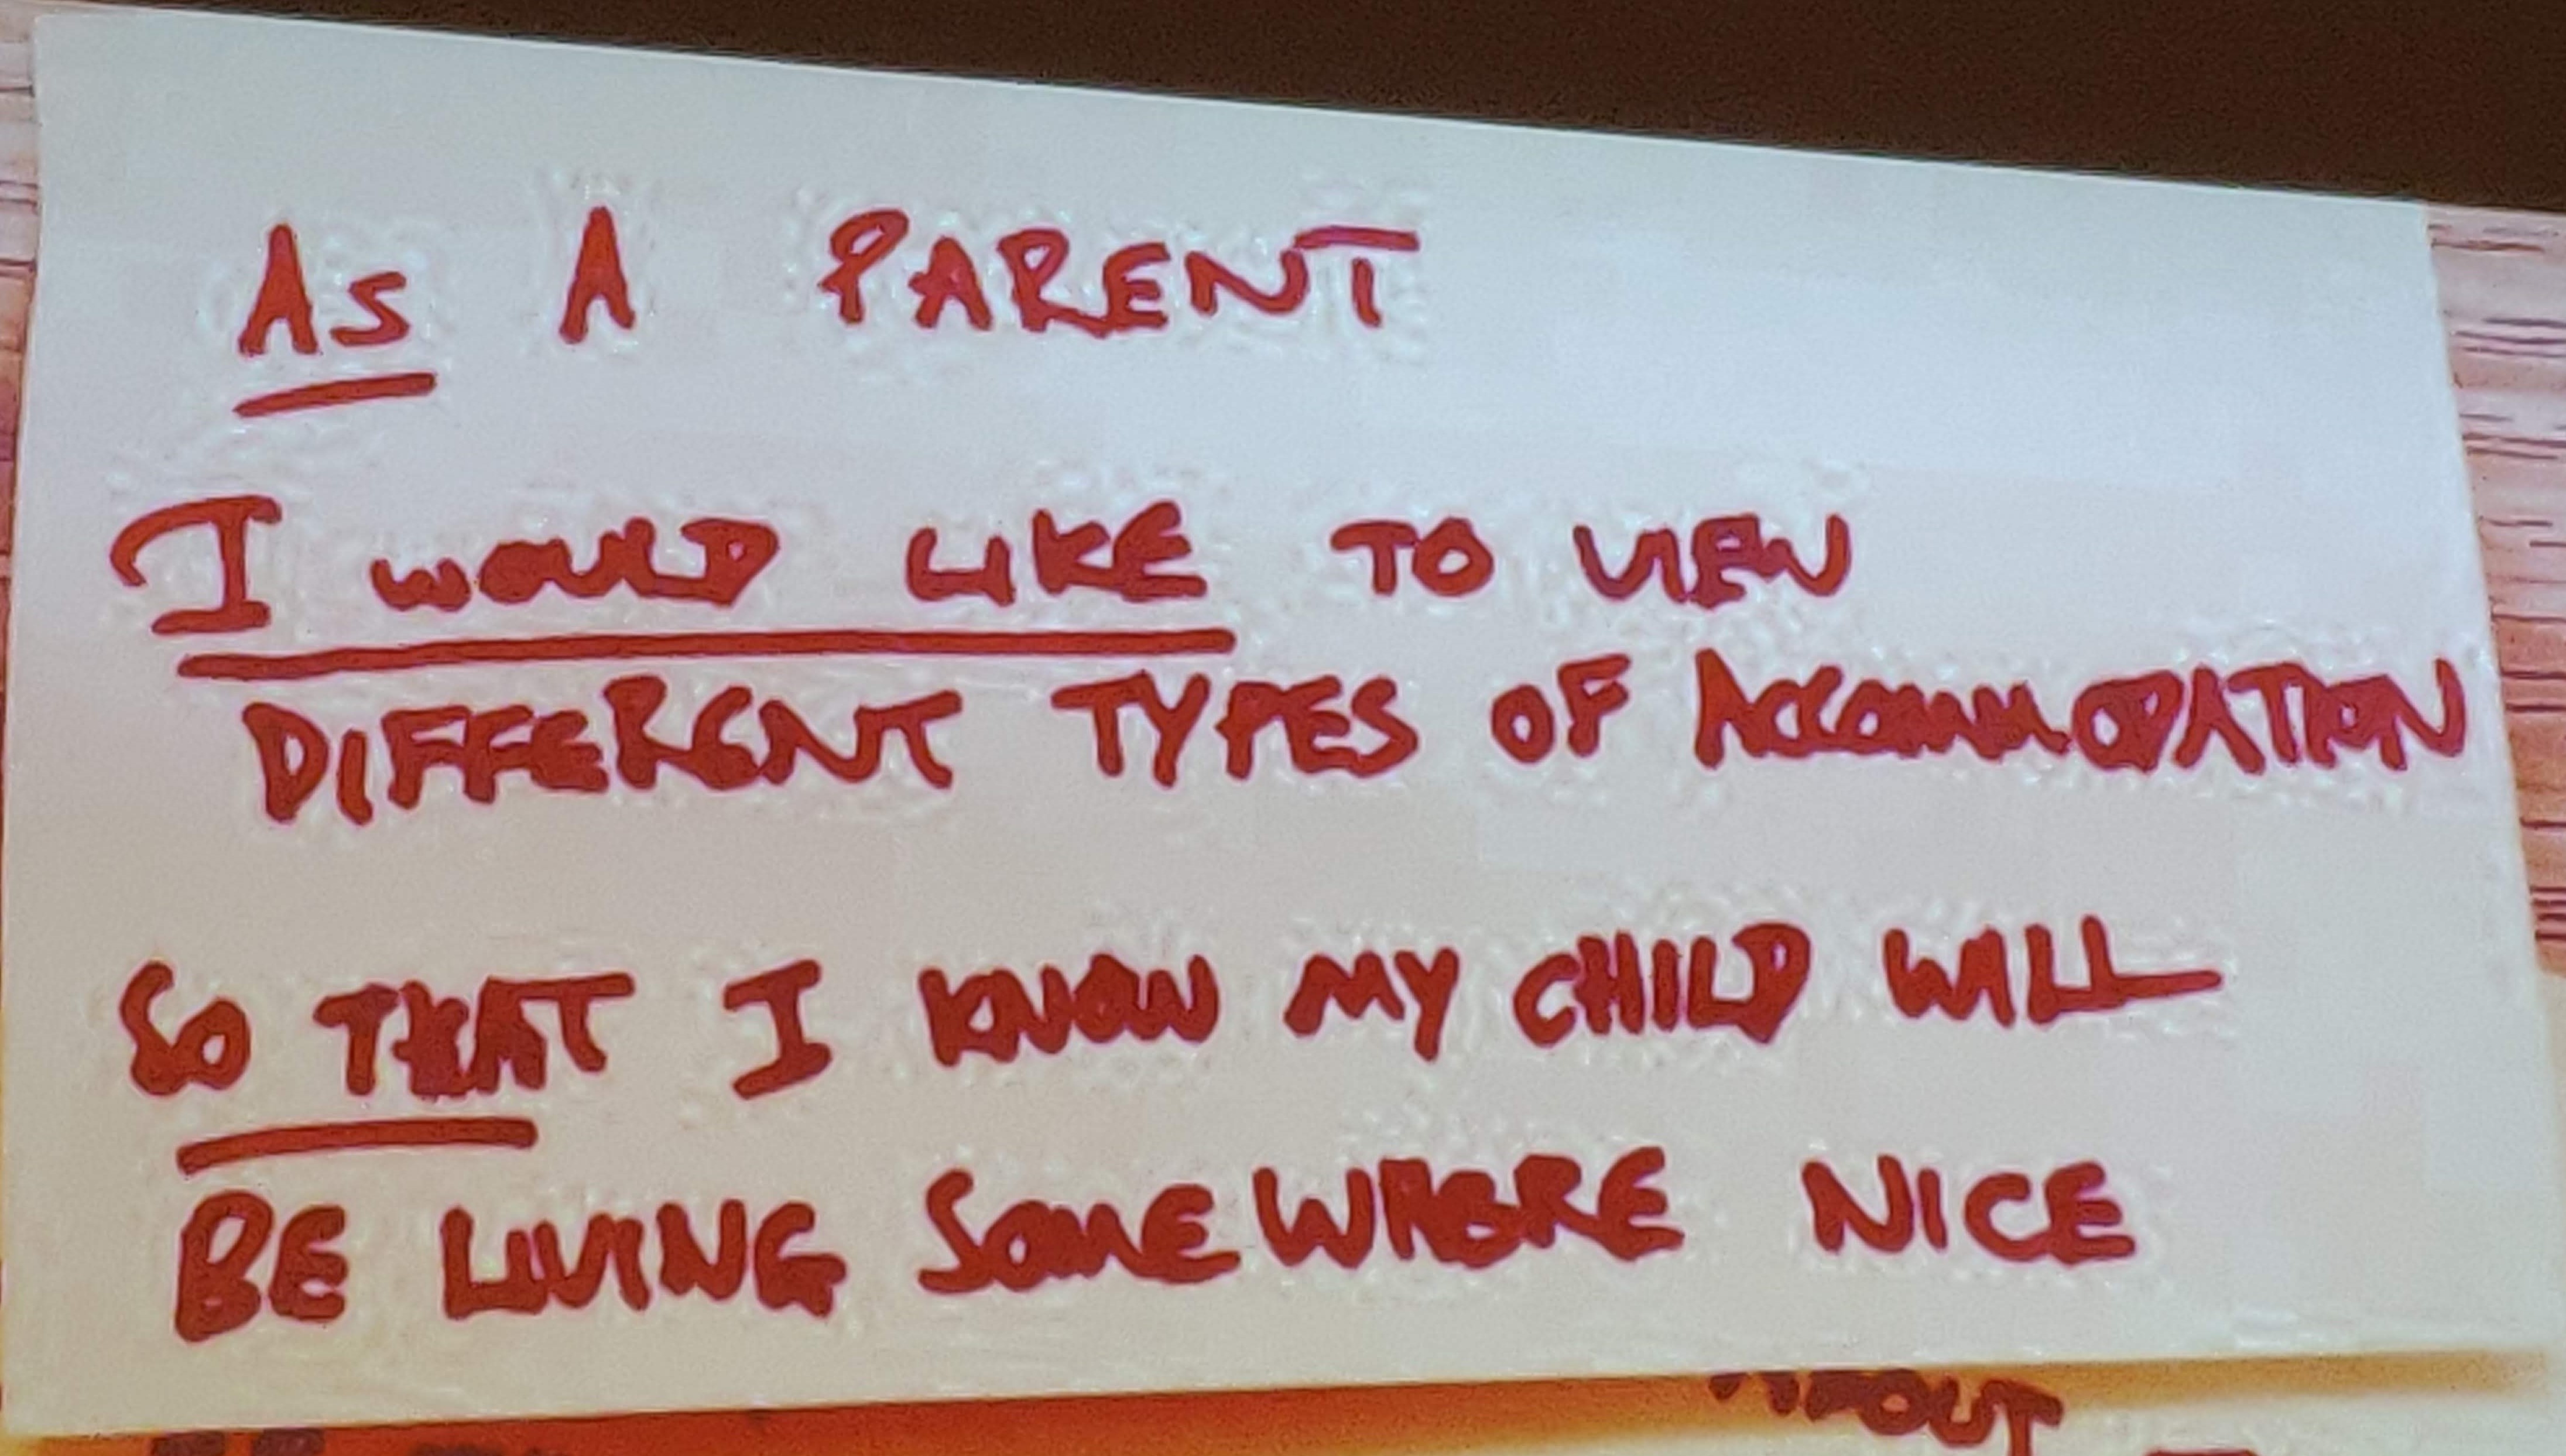 AS A PARENT
I WOULD LIKE TO VIEW
DIFFERENT TYPES OF ACCOMMODATION
SO THAT I KNOW MY CHILD WILL
BE LIVING SOMEWHERE NICE
ABOUT